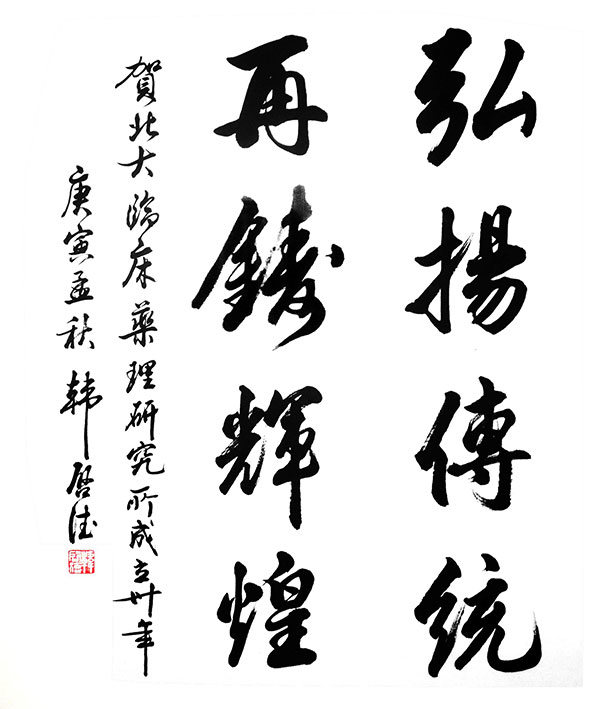 弘揚傳統
再鑄輝煌
賀北大臨床藥理研究所成立卅年
庚寅孟秋 韩启德